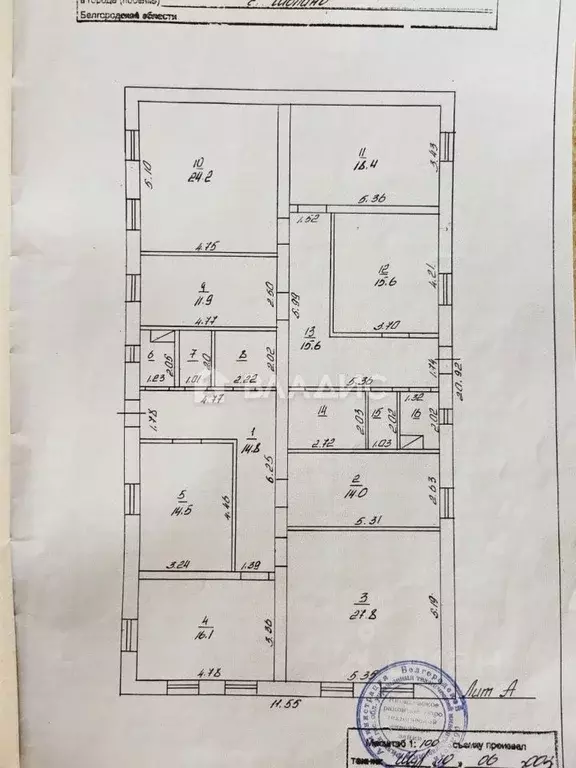 в города (поселке) с. Шопино
Белгородской области
10
24.2
5.10
11
18.4
3.43
5.36
1.52
4.75
12
15.6
4.21
9
11.9
2.50
5.99
4.77
3.70
13
15.6
6
2.05
7
8
2.02
1.74
1.23
1.01
2.22
5.36
20.92
ВЛАДИС
4.77
1.32
1.78
1
14.8
14
2.03
15
2.02
16
2.02
2.72
1.03
6.25
5
14.5
4.46
2
14.0
2.63
5.31
3.24
1.39
3
27.8
5.19
4
16.1
3.36
4.78
5.35
11.55
Лит А
Масштаб 1: 100 съемку произвел
техник
06